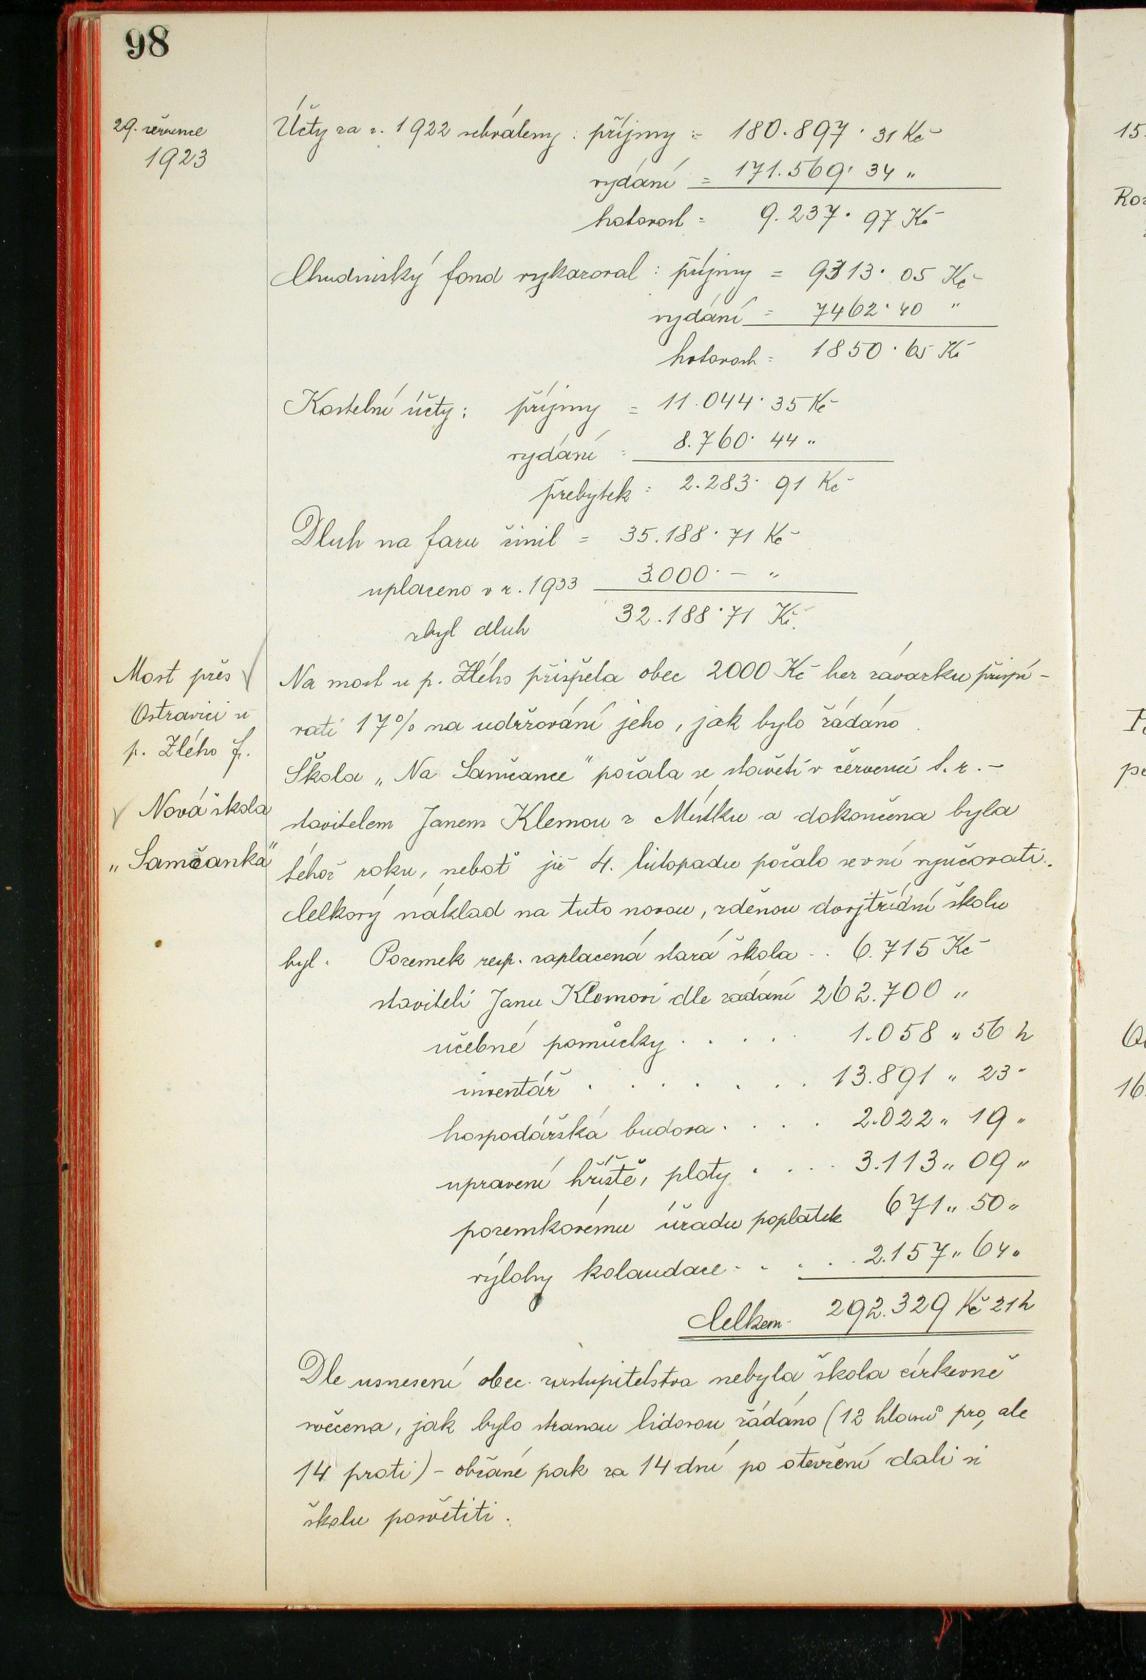 98
29. července
1923
Účty za r. 1922 schváleny: příjmy = 180.897·31 Kč
vydání = 171.569·34 „
hotovost = 9.237·97 Kč
Chudinský fond vykazoval: příjmy = 9313·05 Kč
vydání = 7462·40 "
hotovost = 1850·65 Kč
Kostelní účty: příjmy = 11.044·35 Kč
vydání = 8.760·44 „
přebytek = 2.283·91 Kč
Dluh na faru činil = 35.188·71 Kč
uplaceno v r. 1933 3.000·— „
zbyl dluh 32.188·71 Kč.
Most přes
Ostravici u
p. Zlého
Na most u p. Zlého přispěla obec 2000 Kč bez závazku přispí-
vati 17% na udržování jeho, jak bylo žádáno.
Nová škola
„Samčanka"
Škola „Na Samčance" počala se stavěti v červenci t. r. -
stavitelem Janem Klemou z Místku a dokončena byla
téhož roku, neboť již 4. listopadu počalo se v ní vyučovati.
Celkový náklad na tuto novou, zděnou dvojtřídní školu
byl. Pozemek resp. zaplacená stará škola .. 6.715 Kč
staviteli Janu Klemovi dle zadání 262.700 „
učebné pomůcky . . . . . 1.058 „ 56 h
inventář . . . . . . . 13.891 „ 23 "
hospodářská budova . . . . 2.022 „ 19 „
upravení hřiště, ploty . . . . 3.113 „ 09 „
pozemkovému úřadu poplatek 671 „ 50 „
výlohy kolaudace . . . . . 2.157 „ 64 „
Celkem 292.329 Kč 21 h
Dle usnesení obec. zastupitelstva nebyla škola církevně
svěcena, jak bylo stranou lidovou žádáno (12 hlasů pro, ale
14 proti) - občané pak za 14 dní po otevření dali si
školu posvětiti.